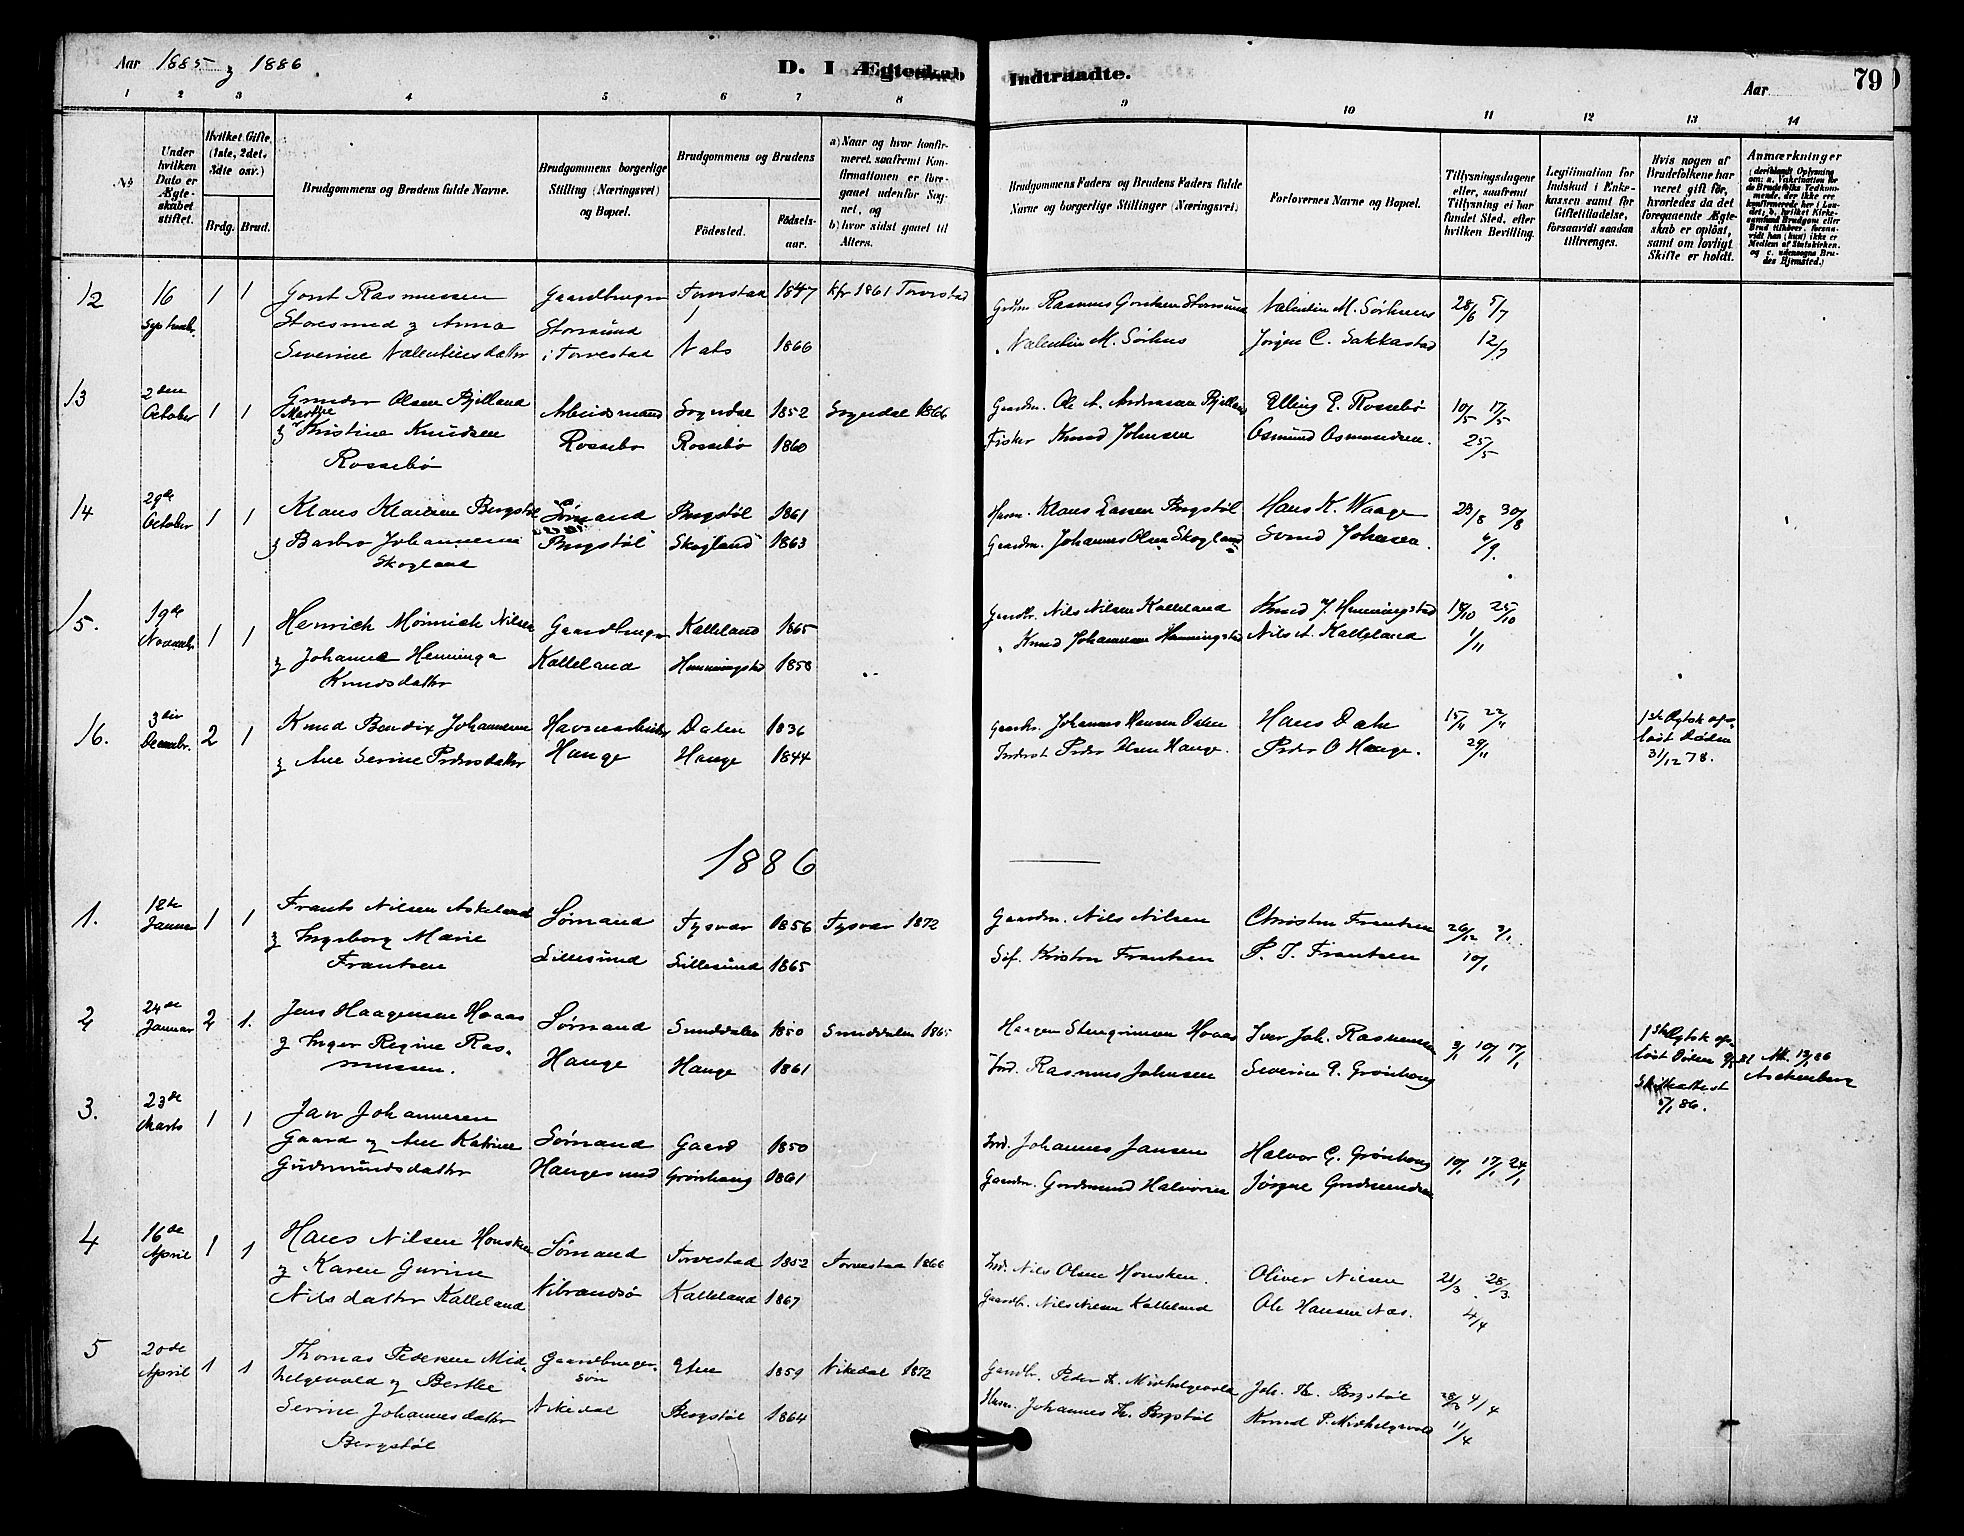 Aar 1885 og 1886
D. I Ægteskab Indtraadte.
Aar
79
1 2 3 4 5 6 7 8 9 10 11 12 13 14
No
Under hvilken Dato er Ægteskabet stiftet.
Hvilket Gifte, (1ste, 2det, 3die osv.)
Brdg. Brud.
Brudgommens og Brudens fulde Navne.
Brudgommens borgerlige Stilling (Næringsvei) og Bopæl.
Brudgommens og Brudens
Fødested.
Fødselsaar.
a) Naar og hvor konfirmeret, saafremt Konfirmationen er foregaaet udenfor Sognet, og
b) hvor sidst gaaet til Alters.
Brudgommens Faders og Brudens Faders fulde Navne og borgerlige Stillinger (Næringsvei)
Forlovernes Navne og Bopæl.
Tillysningsdagene eller, saafremt Tillysning ei har fundet Sted, efter hvilken Bevilling.
Legitimation for Indskud i Enkekassen samt for Giftetilladelse, forsaavidt saadan tiltrænges.
Hvis nogen af Brudefolkene har været gift før, hvorledes da det foregaaende Ægteskab er opløst, samt om lovligt Skifte er holdt.
Anmærkninger
12 16 Septembr. 1 1 Gont Rasmussen Gaardbruger Torvestad 1847 kfr 1861 Torvestad
Storesund og Anna Storesund
Severine Valentinsdatter i Torvestad Nats 1866
Rasmus Gontsen Storesund Valentin M. Sørhuus 28/6 5/7
Valentin M. Sørhus Jørgen C. Sakkastad 12/7
13 2den October 1 1 Olsen Bjelland Arbeidsmand Sogndal 1852 Sogndal 1866
Marthe
og Kristine Knudsen Rossebø Rossebø 1860
Rossebø
Gaardm. Ole A. Andreassen Bjelland Elling E. Rossebø 10/5 17/5
Fisker Knud Johnsen Osmund Osmundsen. 25/5
14 29de October 1 1 Klaus Klausen Bergstøl Sømand Bergstøl 1861
og Barbro Johannesen Bergstøl Skogland 1863
Skogland
Husm. Klaus Larsen Bergstøl Hans K. Waage 23/8 30/8
Gaardm. Johannes Olsen Skogland Svend Johnsen. 6/9.
15. 19de Novembr. 1 1 Henrich Mønnich Nilsen Gaardbruger Kalleland 1865
og Johanne Henninga Kalleland Henningstad 1858
Knudsdatter
Gaardbr. Nils Nilsen Kalleland Knud J. Henningstad 18/10 25/10
" Knud Johannesen Henningstad Nils A. Kalleland 1/11
16. 3die Decembr. 2 1 Knud Bendix Johannesen Havnearbeider Dalen 1836
og Ane Serine Pedersdatter Hauge Hauge 1844
Gaardbr. Johannes Hansen Dalen Hans Dale 15/11 22/11
Inderst Peder Olsen Hauge. Peder O Hauge. 29/11
1ste Ægtsk opløst Døden 31/12 78.
1886
1. 12te Januar 1 1 Frants Nilsen Askeland Sømand Tysvær 1856 Tysvær 1872
og Ingeborg Marie Lillesund Lillesund 1865
Frantsen
Gaardm. Nils Nilsen Christen Frantsen 26/12 3/1.
Kristen Frantsen P. J. Frantsen 10/1
2 24de Januar 2 1. Jens Haagensen Hoaas Sømand Sunddalen 1850 Sunddalen 1865
og Inger Regine Rasmussen. Hauge Hauge 1861
Haagen Stengrimsen Hoaas Iver Joh. Rasmussen 3/1 10/1 17/1
Ind. Rasmus Johnsen Severin G. Grønhoug
1ste Ægtsk opløst Døden
Skifteattest 5/1 86.
3. 23de Marts 1 1 Jan Johannesen
Gaard og Ane Katrine Sømand Gaard 1850
Gudmundsdatter Haugesund Grønhaug 1861
Ind. Johannes Jansen Halvor G. Grønhoug 10/1 17/1 24/1
Gaardm. Gudmund Halvorsen Jørgne Gudmundsen
4 16de April 1 1 Hans Nilsen Housken Sømand Torvestad 1852 Torvestad 1866
og Karen Gurine
Nilsdatter Kalleland Vibrandsø Kalleland 1867
Ind. Nils Olsen Housken. Oliver Nilsen 21/3 28/3.
Gaardbr. Nils Nilsen Kalleland Ole Hansen Næs. 4/4
5 20de April 1 1 Thomas Pedersen Midhelgevold og Berthe Gaardbrugersøn Etne 1859 Vikedal 1872
Serine Johannesdatter Vikedal Bergstøl 1864
Bergstøl
Gaardbr. Peder T. Midhelgevold Joh. Th. Bergstøl 28/3 4/4
Husm. Johannes Th. Bergstøl Knud P. Midhelgevold 11/4